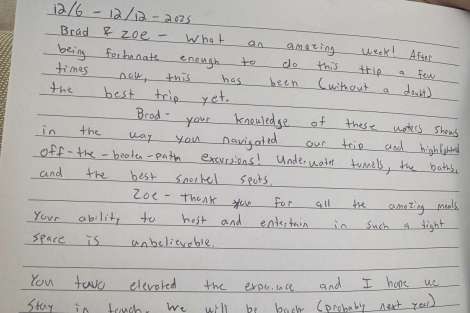 12/6 - 12/12 - 2025
Brad & Zoe - What an amazing week! After
being fortunate enough to do this trip a few
times now, this has been (without a doubt)
the best trip yet.
Brad - your knowledge of these waters shows
in the way you navigated our trip and highlighted
off-the-beaten-path excursions! Underwater tunnels, the baths,
and the best snorkel spots.
Zoe - Thank you for all the amazing meals
Your ability to host and entertain in such a tight
space is unbelievable.
You two elevated the experience and I hope we
stay in touch. We will be back (probably next year)